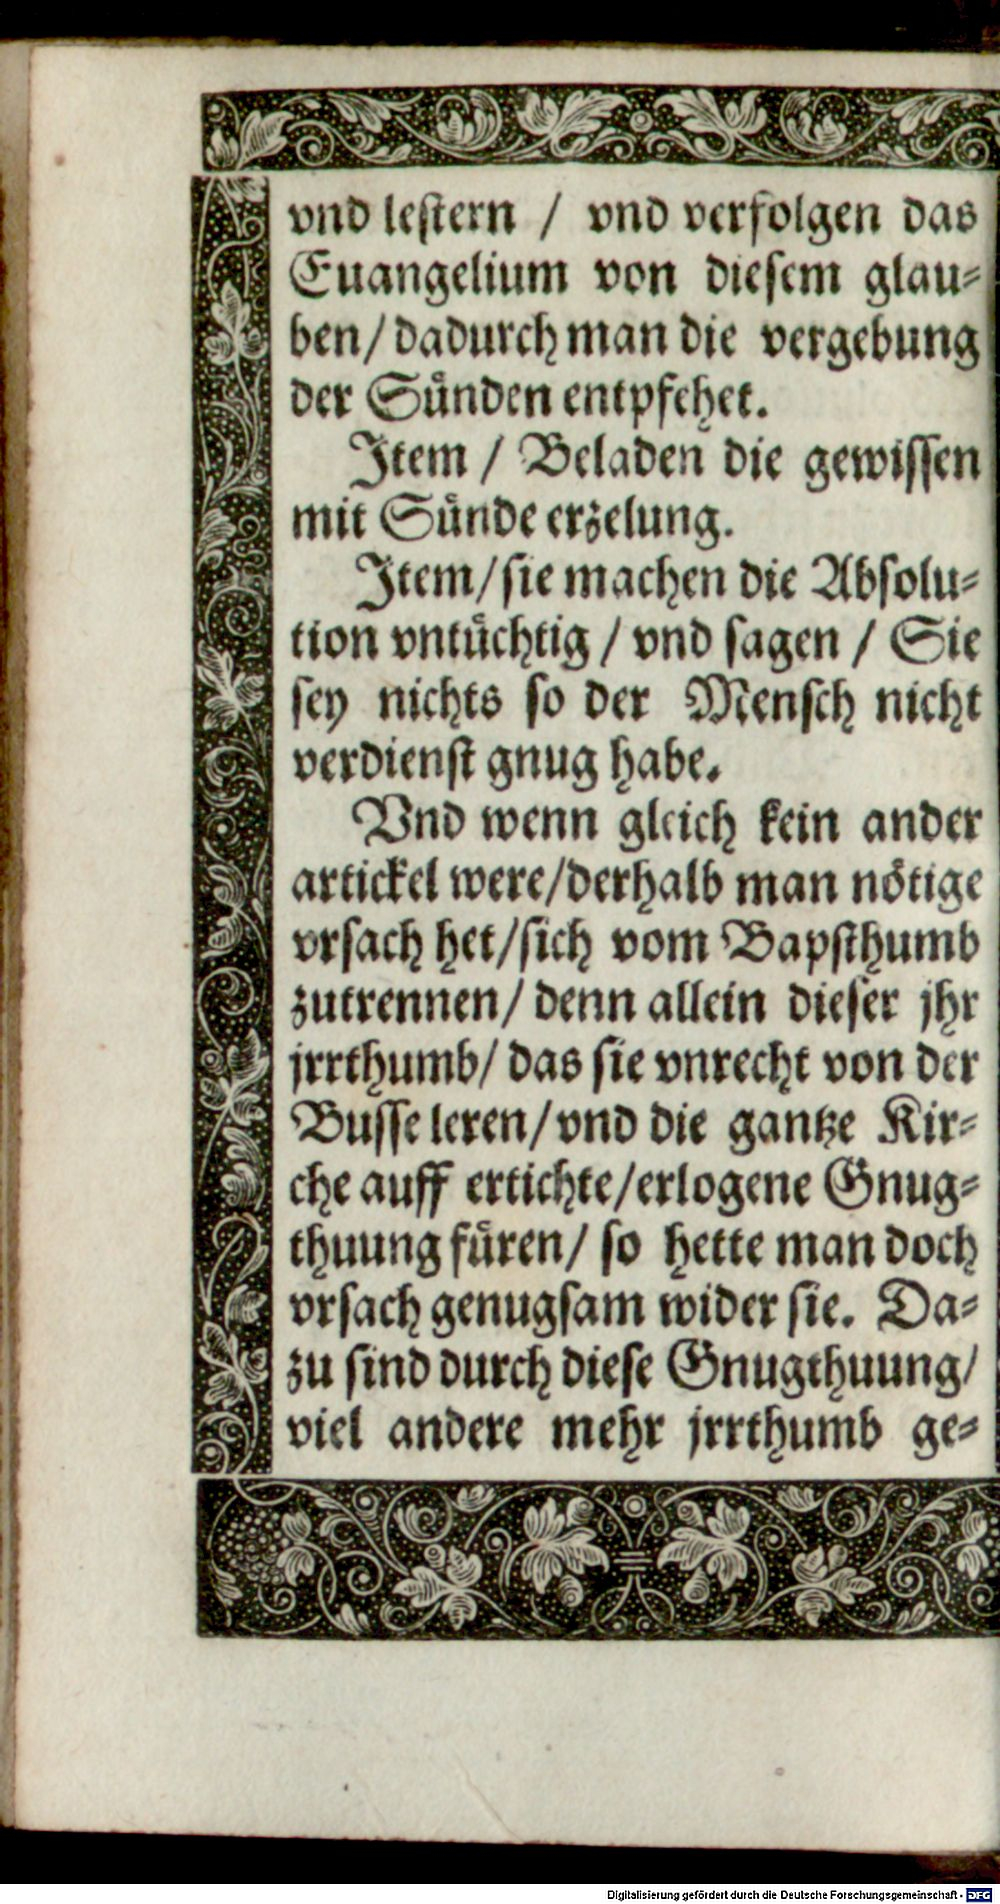 vnd lestern / vnd verfolgen das
Euangelium von diesem glau⸗
ben / dadurch man die vergebung
der Sünden entpfehet.
Item / Beladen die gewissen
mit Sünde erzelung.
Item / sie machen die Absolu⸗
tion vntüchtig / vnd sagen / Sie
sey nichts so der Mensch nicht
verdienst gnug habe.
Vnd wenn gleich kein ander
artickel were / derhalb man nötige
vrsach het / sich vom Bapsthumb
zutrennen / denn allein dieser jhr
jrrthumb / das sie vnrecht von der
Busse leren / vnd die gantze Kir⸗
che auff ertichte / erlogene Gnug⸗
thuung füren / so hette man doch
vrsach genugsam wider sie. Da⸗
zu sind durch diese Gnugthuung /
viel andere mehr jrrthumb ge⸗
Digitalisierung gefördert durch die Deutsche Forschungsgemeinschaft - DFG